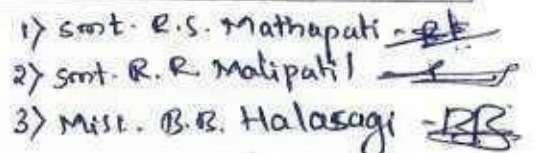 1) Smt. R.S. Mathapati -
2) Smt. R.R. Malipatil
3) Miss. B.B. Halasagi -BB